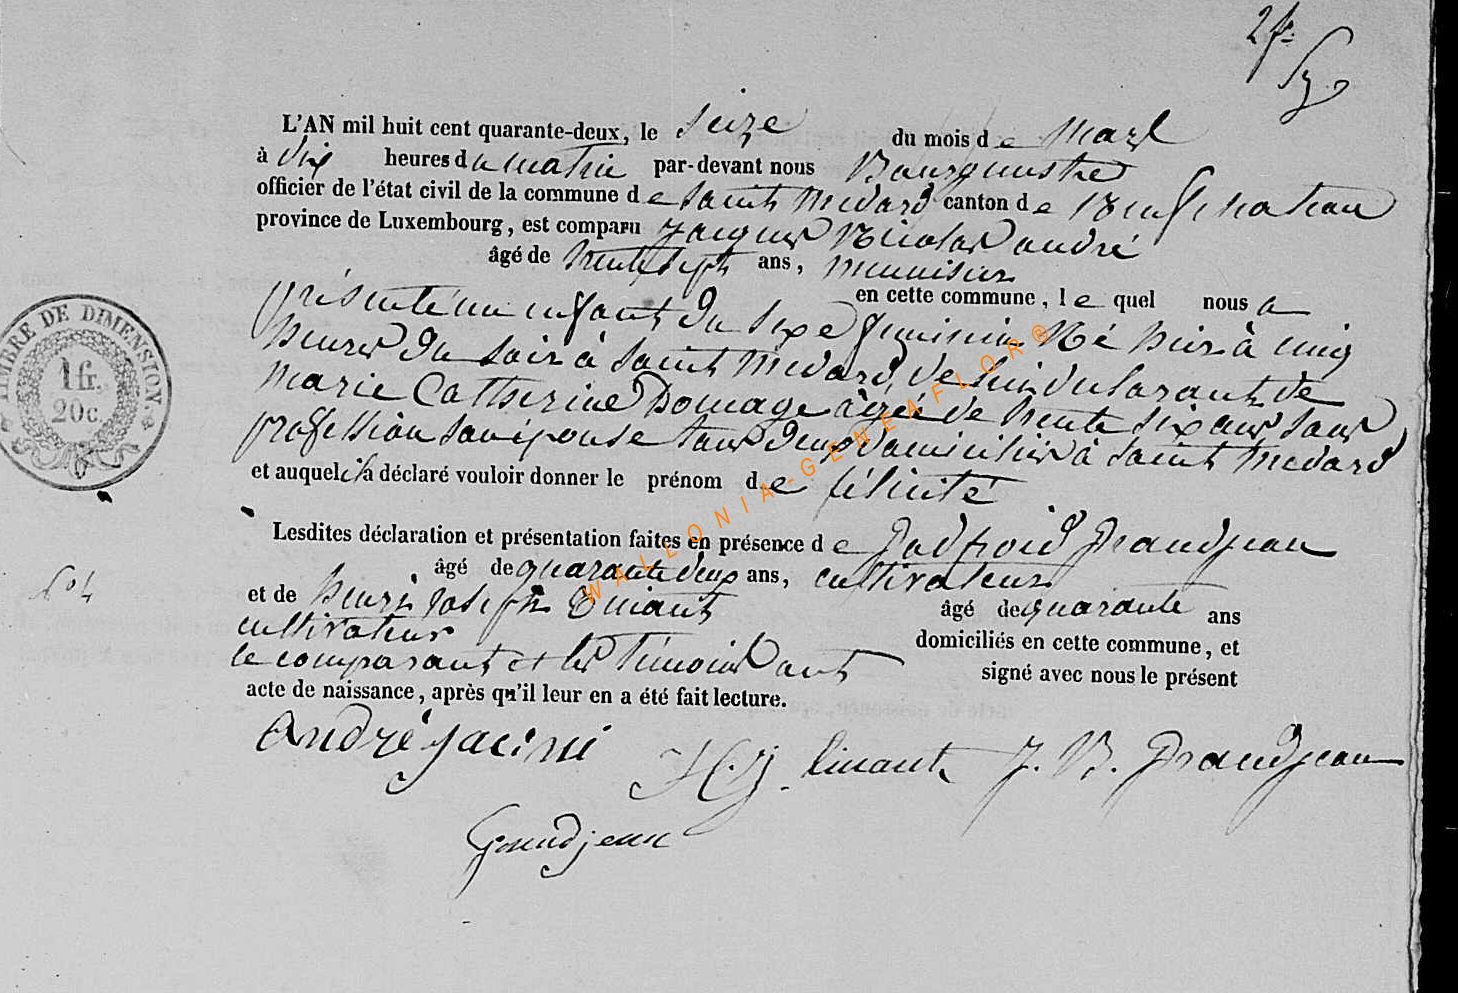 2 f.
L'AN mil huit cent quarante-deux, le seize du mois de Mars
à dix heures du matin par-devant nous Bourgmestre
officier de l'état civil de la commune de Saint Médard canton de Neufchateau
province de Luxembourg, est comparu Jacques Nicolas André
âgé de trente sept ans, menuisier
en cette commune, lequel nous a
présenté un enfant du sexe féminin Né hier à cinq
heures du soir à Saint Médard, de lui déclarant, de
Marie Catherine Domage âgée de trente six ans sans
profession son épouse tous deux domiciliés à Saint Médard
et auquel il a déclaré vouloir donner le prénom de félicité
Lesdites déclaration et présentation faites en présence de Godfroid Grandjean
âgé de quarante deux ans, cultivateur
et de henri Joseph âgé de quarante ans
cultivateur domiciliés en cette commune, et
le comparant et les témoins ont signé avec nous le présent
acte de naissance, après qu'il leur en a été fait lecture.
André
H. J. J. B. Grandjean
Grandjean
TIMBRE DE DIMENSION.
1 fr.
20 c.
No 4
WALLONIA-GENEAFLOR®